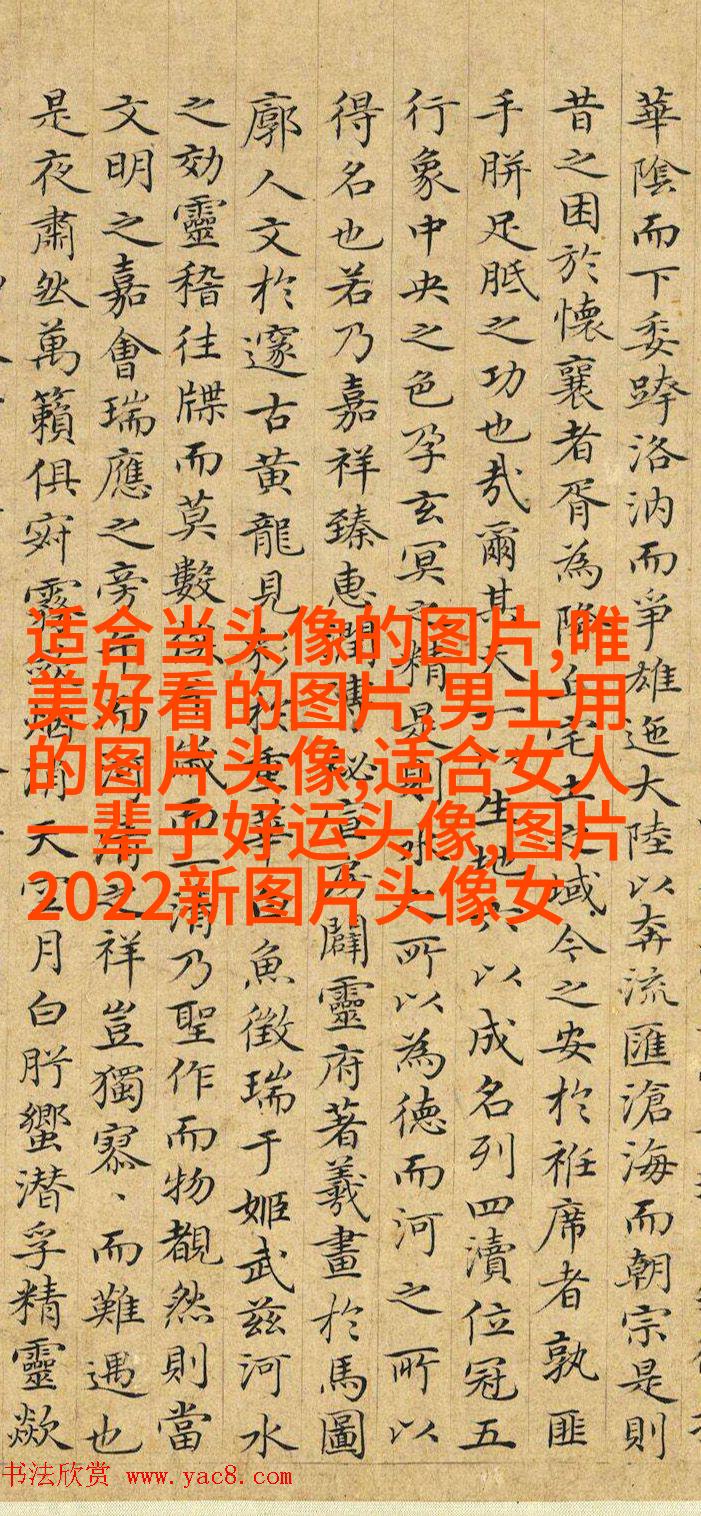 華陰而下委跨洛汭而爭雄迤大陸以奔流匯滄海而朝宗是則
昔之困於懷襄者胥為降丘宅土之域今之安於袵席者孰匪
手胼足胝之功也哉爾其天一生地以成名列四瀆位冠五
行象中央之色孕玄冥之精是則水之所以為德而河之所以
得名也若乃嘉祥臻惠潤溥秘闢靈府著羲畫於馬圖
廓人文於邃古黃龍見彩重華白魚徵瑞于姬武茲河水
之効靈稽往牒而莫數而一清乃聖作而物覩然則當
文明之嘉會瑞應之旁午而河清之祥豈獨寥、而難遇也
是夜肅然萬籟俱寂霧消天空月白肸蠁潜孚精靈歘
适合当头像的图片,唯
美好看的图片,男士用
的图片头像,适合女人
一辈子好运头像,图片
2022新图片头像女
书法欣赏 www.yac8.com